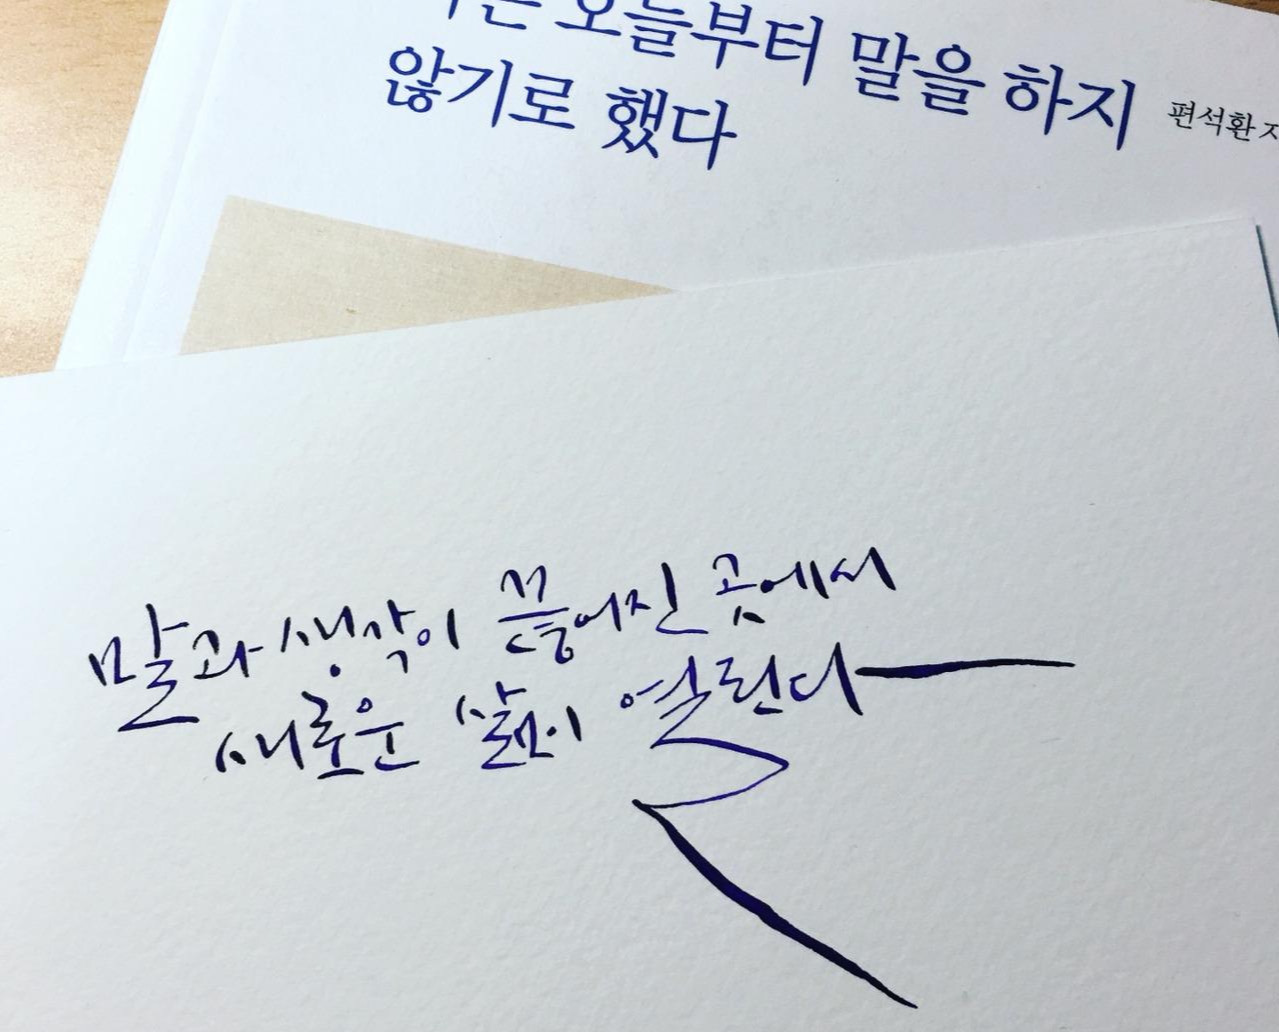 는 오늘부터 말을 하지
않기로 했다
편석환
말과 생각이 끊어진 곳에서
새로운 삶이 열린다